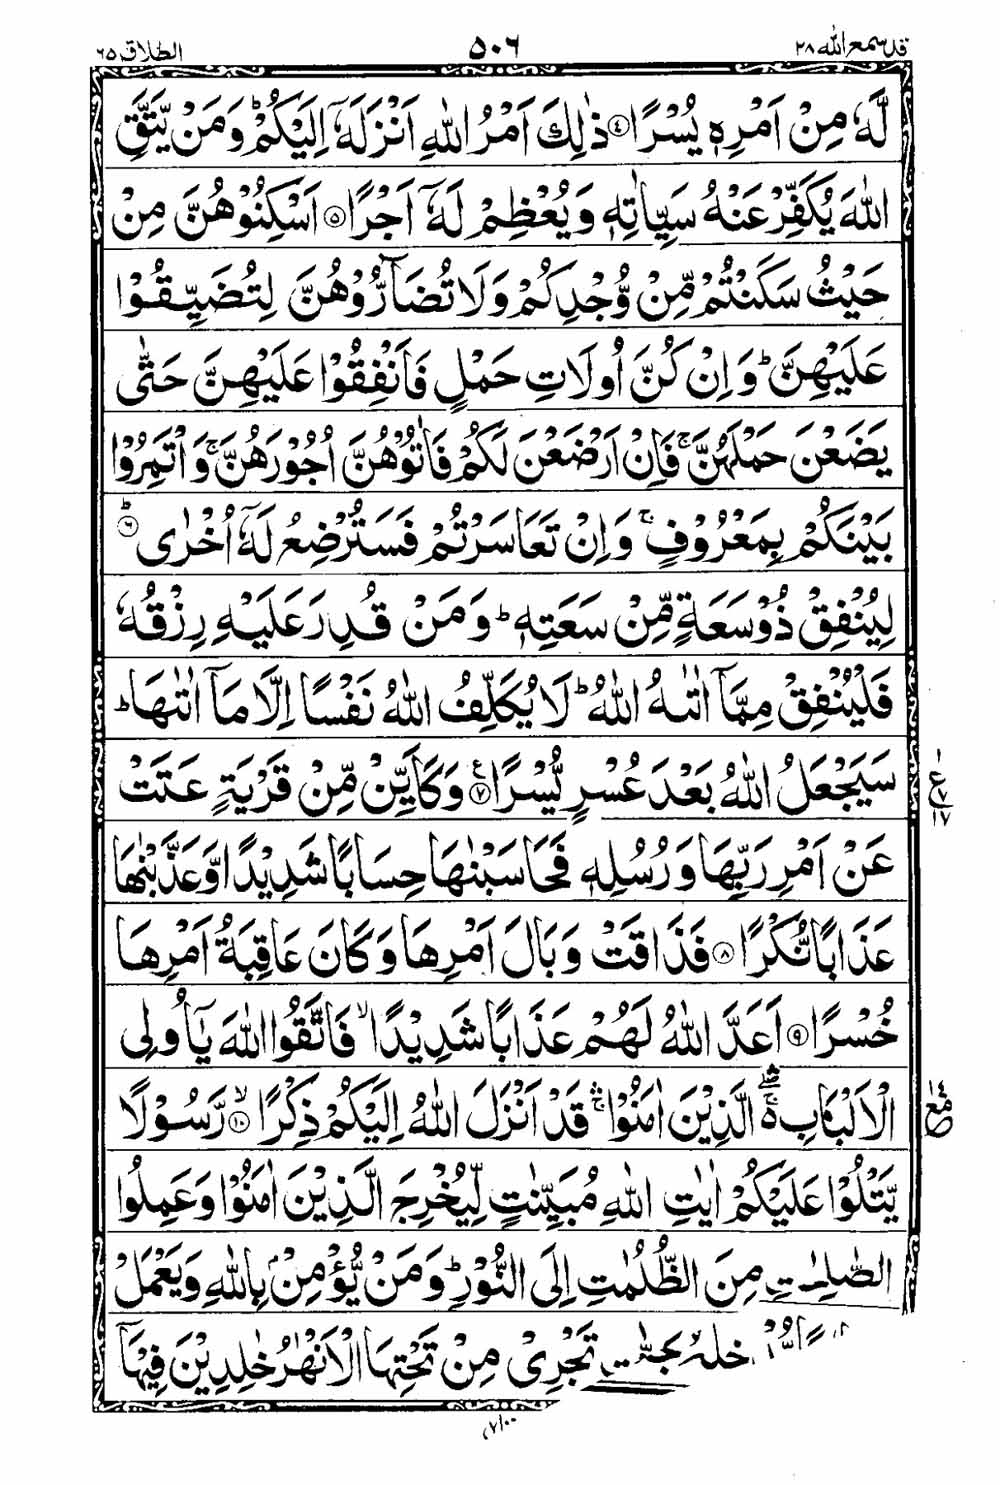 قد سمع الله ٢٨
٥٠٦
الطلاق ٦٥
لَّهٗ مِنْ اَمْرِهٖ يُسْرًا ④ ذٰلِكَ اَمْرُ اللّٰهِ اَنْزَلَهٗۤ اِلَيْكُمْ ؕ وَمَنْ يَّتَّقِ
اللّٰهَ يُكَفِّرْ عَنْهُ سَيِّاٰتِهٖ وَيُعْظِمْ لَهٗۤ اَجْرًا ⑤ اَسْكِنُوْهُنَّ مِنْ
حَيْثُ سَكَنْتُمْ مِّنْ وُّجْدِكُمْ وَلَا تُضَآرُّوْهُنَّ لِتُضَيِّقُوْا
عَلَيْهِنَّ ؕ وَاِنْ كُنَّ اُولَاتِ حَمْلٍ فَاَنْفِقُوْا عَلَيْهِنَّ حَتّٰى
يَضَعْنَ حَمْلَهُنَّ ۚ فَاِنْ اَرْضَعْنَ لَكُمْ فَاٰتُوْهُنَّ اُجُوْرَهُنَّ ۚ وَاْتَمِرُوْا
بَيْنَكُمْ بِمَعْرُوْفٍ ۚ وَاِنْ تَعَاسَرْتُمْ فَسَتُرْضِعُ لَهٗۤ اُخْرٰى ؕ ⑥
لِيُنْفِقْ ذُوْ سَعَةٍ مِّنْ سَعَتِهٖ ؕ وَمَنْ قُدِرَ عَلَيْهِ رِزْقُهٗ
فَلْيُنْفِقْ مِمَّاۤ اٰتٰىهُ اللّٰهُ ؕ لَا يُكَلِّفُ اللّٰهُ نَفْسًا اِلَّا مَاۤ اٰتٰىهَا ؕ
سَيَجْعَلُ اللّٰهُ بَعْدَ عُسْرٍ يُّسْرًا ⑦ وَكَاَيِّنْ مِّنْ قَرْيَةٍ عَتَتْ
عَنْ اَمْرِ رَبِّهَا وَرُسُلِهٖ فَحَاسَبْنٰهَا حِسَابًا شَدِيْدًا وَّعَذَّبْنٰهَا
عَذَابًا نُّكْرًا ⑧ فَذَاقَتْ وَبَالَ اَمْرِهَا وَكَانَ عَاقِبَةُ اَمْرِهَا
خُسْرًا ⑨ اَعَدَّ اللّٰهُ لَهُمْ عَذَابًا شَدِيْدًا ۙ فَاتَّقُوا اللّٰهَ يٰۤاُولِى
الْاَلْبَابِ ۛۚ الَّذِيْنَ اٰمَنُوْا ۛؕ قَدْ اَنْزَلَ اللّٰهُ اِلَيْكُمْ ذِكْرًا ۙ ⑩ رَّسُوْلًا
يَّتْلُوْا عَلَيْكُمْ اٰيٰتِ اللّٰهِ مُبَيِّنٰتٍ لِّيُخْرِجَ الَّذِيْنَ اٰمَنُوْا وَعَمِلُوا
الصّٰلِحٰتِ مِنَ الظُّلُمٰتِ اِلَى النُّوْرِ ؕ وَمَنْ يُّؤْمِنْۢ بِاللّٰهِ وَيَعْمَلْ
تَجْرِىْ مِنْ تَحْتِهَا الْاَنْهٰرُ خٰلِدِيْنَ فِيْهَاۤ